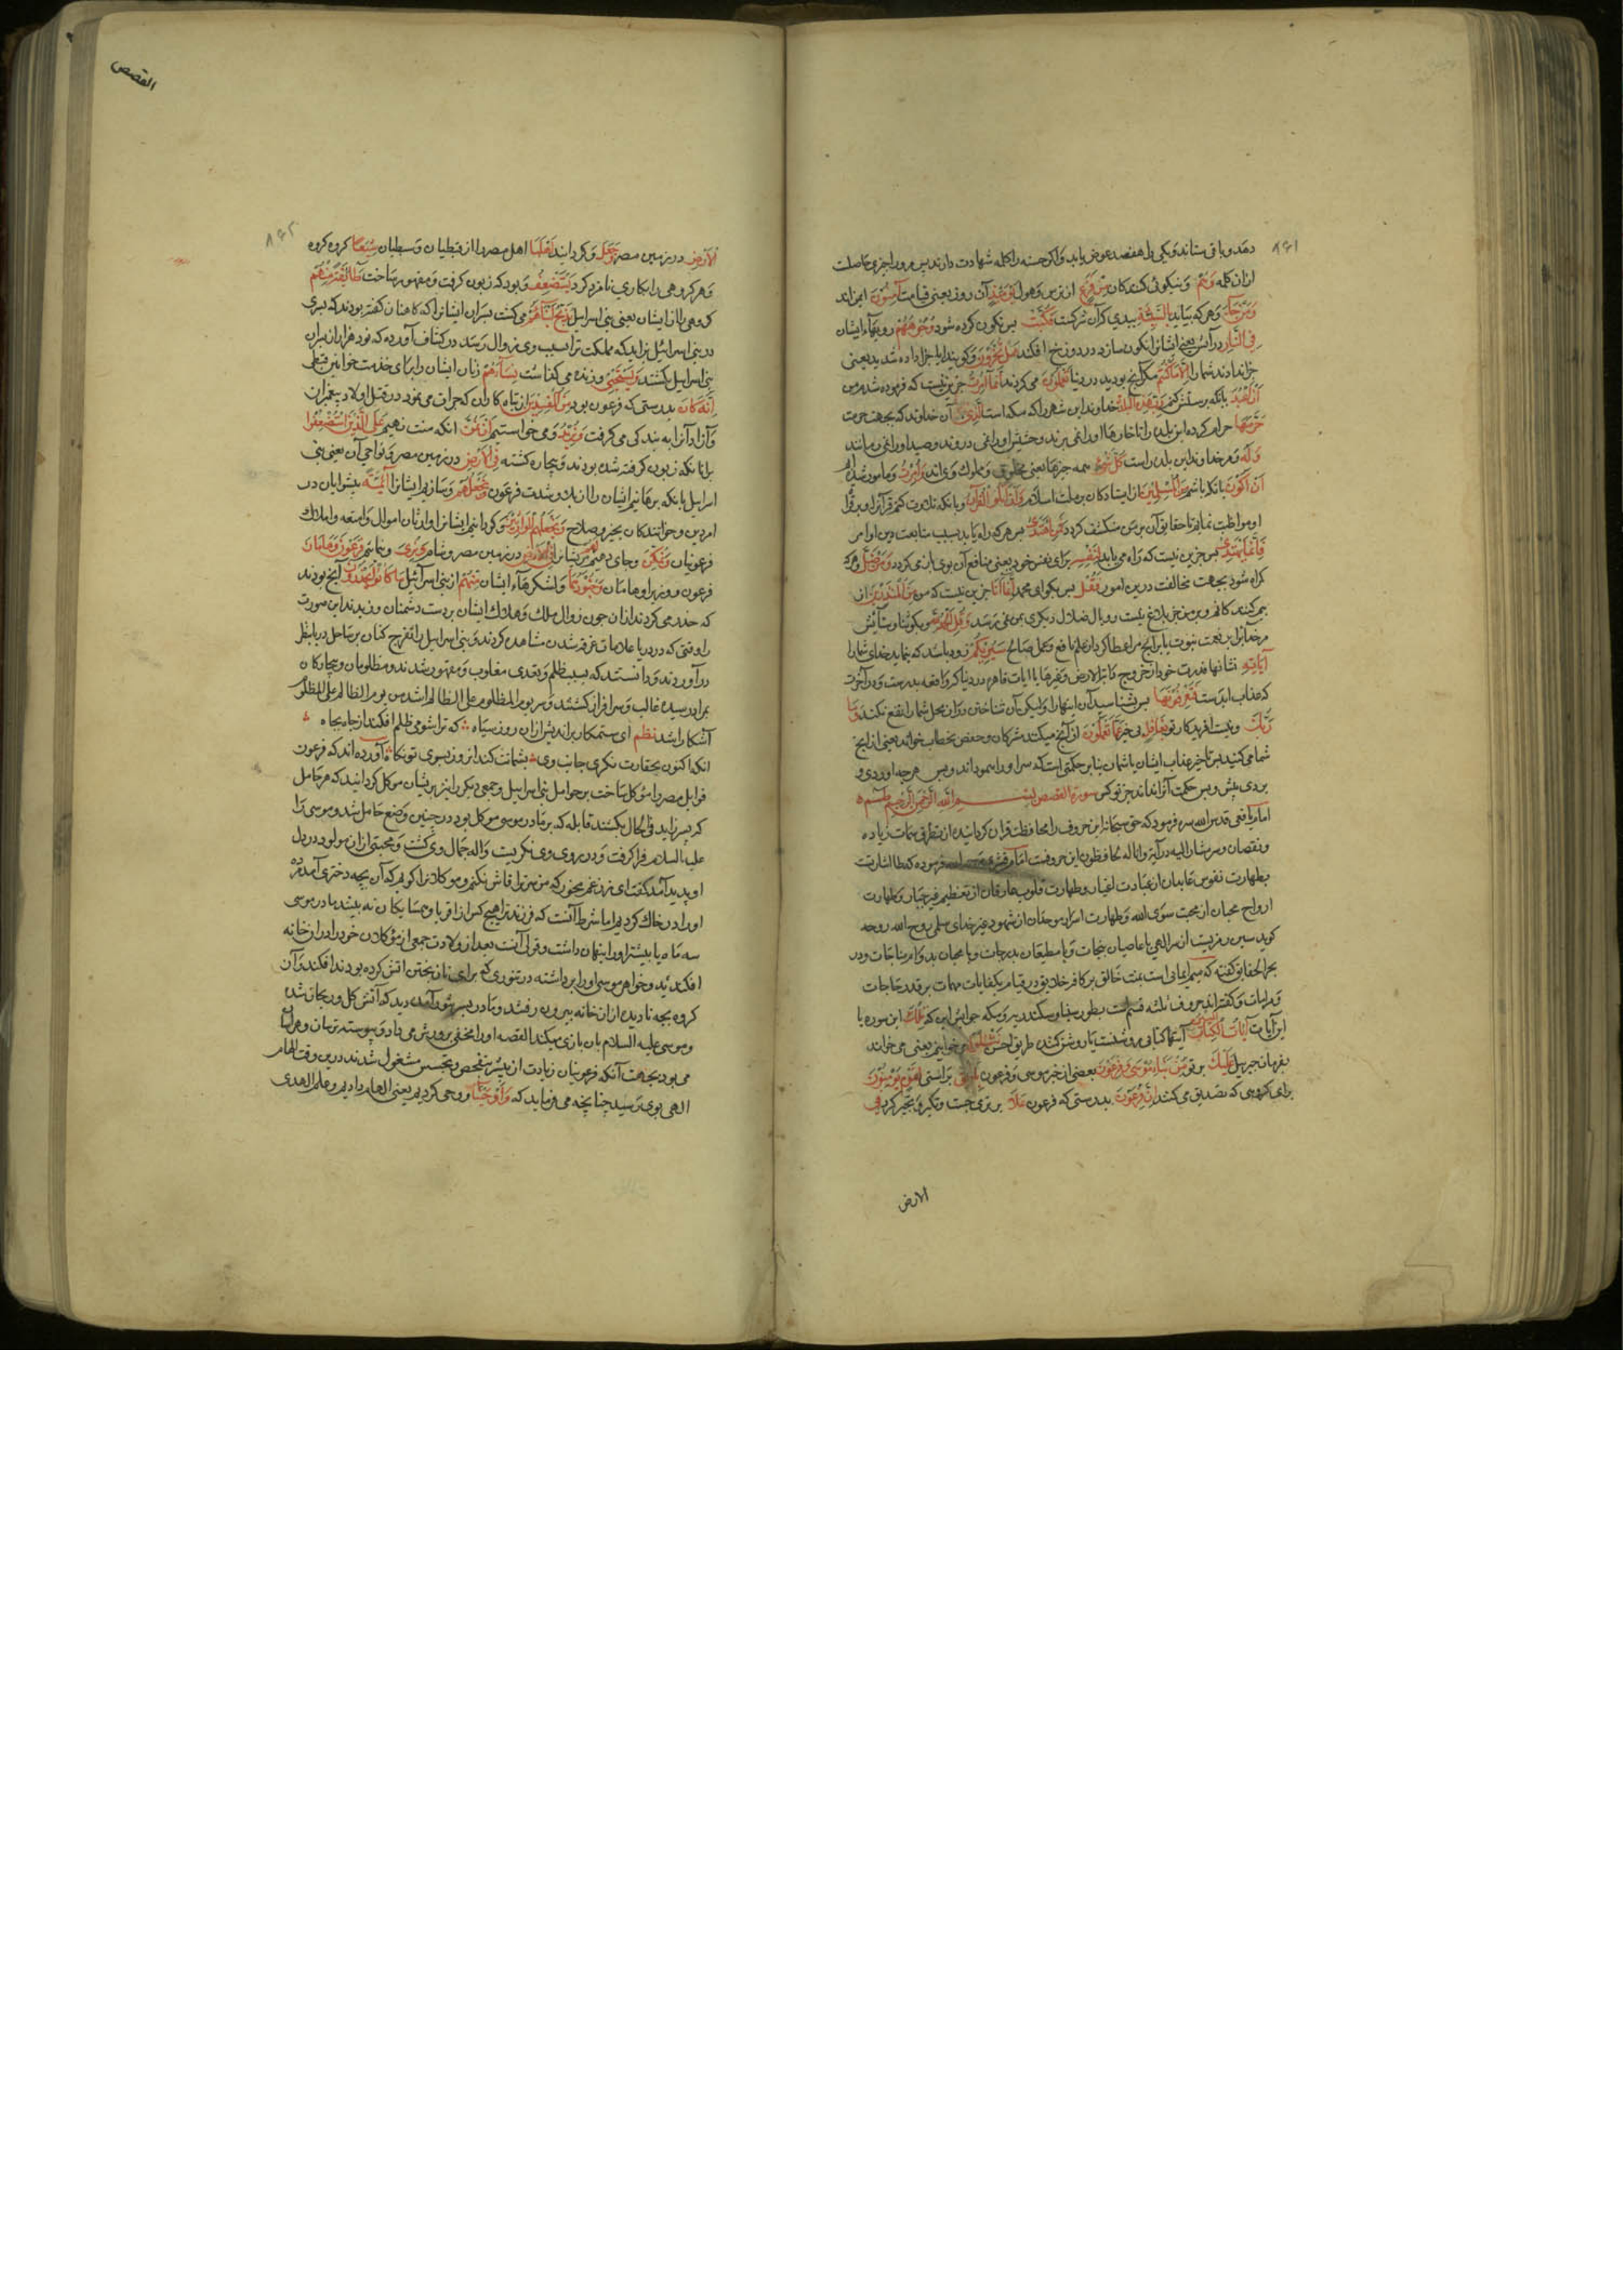 ۸۶۱
دهد و باقی ستاند و یکی را هفصد عوض یابد و اگر حسنه را کلمه شهادت دارند پس مرورا چیزی حاصلست
ازان کلمه وَهُمْ و نیکوئی کنندکان مِنْ فَزَعٍ از ترس و هول یَوْمَئِذٍ آن روز یعنی قیامت آمِنُونَ ایمن اند
وَمَنْ جَاءَ و هر که بیاید بِالسَّیِّئَةِ ببدی که آن شرکست فَکُبَّتْ پس نکون کرده شود وُجُوهُهُمْ رویهاء ایشان
فِی النَّارِ در آتش یعنی ایشانرا نکونسار در دوزخ افکند هَلْ تُجْزَوْنَ و کویند ایا جزا داده شدید یعنی
جزا ندادند شما را اِلَّا مَا کُنْتُمْ مکر آنچ بودید در دنیا تَعْمَلُونَ می کردند اِنَّمَا اُمِرْتُ جزین نیست که فرموده شدم من
اَنْ اَعْبُدَ بانکه پرستش کنم رَبَّ هٰذِهِ الْبَلْدَةِ خداوند این شهر را که مکه است الَّذِی آن خداوند که بجهت حرمت
حَرَّمَهَا حرام کرده این بلده را تا خارها او را نمی برند و حشیش او را نمی دروند و صید او را نمی رمانند
وَلَهُ و مر خداوند این بلده راست کُلُّ شَیْءٍ همه چیزها یعنی مخلوق و مملوک وی اند وَاُمِرْتُ و مامور شده ام
اَنْ اَکُونَ بانکه باشم مِنَ الْمُسْلِمِینَ از ایستادکان بر ملت اسلام وَاَنْ اَتْلُوَ الْقُرْآنَ و بانکه تلاوت کنم قرآنرا و بر تلاوت
او مواظبت نمایم تا حقایق آن بر من منکشف کردد فَمَنِ اهْتَدٰی پس هر که راه یابد بسبب متابعت من اوامر
فَاِنَّمَا یَهْتَدِی پس جزین نیست که راه می یابد لِنَفْسِهِ برای نفس خود یعنی منافع آن بوی باز می کردد وَمَنْ ضَلَّ و هر که
کمراه شود بجهت مخالفت درین امور فَقُلْ پس بکوای محمد اِنَّمَا اَنَا جزین نیست که من مِنَ الْمُنْذِرِینَ از
بیم کنندکانم و بر من جز بلاغ نیست و وبال ضلال دیکری بمن نمی رسد وَقُلِ الْحَمْدُ لِلّٰهِ و بکو ثنا و ستایش
مر خدایرا بر نعمت نبوت یا بر آنچ مرا عطا کرد از علم نافع و عمل صالح سَیُرِیکُمْ زود باشد که بنماید خدای شما را
آیَاتِهِ نشانها قدرت خود از خروج دابة الارض و غیرها یا ایات قاهره در دنیا کر واقعه بدرست و در آخرت
که عذاب ابدست فَتَعْرِفُونَهَا پس بشناسید آن ایتها را و لیکن آن شناختن دران محل شما را نفع نکند وَمَا
رَبُّکَ و نیست افریدکار تو بِغَافِلٍ بی خبر عَمَّا تَعْمَلُونَ از آنچ میکنند مشرکان و حفص بخطاب خواند یعنی از آنچ
شما می کنید پس تاخیر عذاب ایشان
سورة القصص بسم الله الرحمن الرحیم طسم
امام یافعی قدس الله سره فرمود که حق سبحانه این حروف را محافظت قران کردانیده از تطرق سمات زیاده
و نقصان و سر مشار الیه در آیة وانا له لحافظون این حروفست امام قشیری رحمه الله فرموده که طا اشارتست
بطهارت نفوس عابدان از عبادت اغیار و طهارت قلوب عارفان از تعظیم غیر جبار و طهارت
ارواح محبان از محبت سوی الله و طهارت اسرار موحدان از شهود غیر خدای سلمی روح الله روحه
کوید سین رمزیست از سر الهی با عاصیان بنجات و با مطیعان بدرجات و با محبان بدوام مناجات و در
بحر الحقایق کفته که میم ایمانی است بمنت خالق بر کافر خلایق در قیام بکفایات مهمات بر قدر حاجات
و مرادات و کفته اند حروف ثلثه قسم است بطور سینا و سکندریه و مکه جوابش این که تِلْکَ این سوره یا
این آیات آیَاتُ الْکِتَابِ الْمُبِینِ آیتها کتابی روشنست یا روشن کننده طریق احسن نَتْلُوا می خوانیم یعنی می خواند
بفرمان جبریل عَلَیْکَ بر تو مِنْ نَبَأِ مُوسٰی وَفِرْعَوْنَ بعضی از خبر موسی و فرعون بِالْحَقِّ براستی لِقَوْمٍ یُؤْمِنُونَ
برای کروهی که تصدیق می کنند اِنَّ فِرْعَوْنَ بدرستی که فرعون عَلَا برتری جست و تکبر و تجبر کرد فِی
الارض
القصص
۸۶۲
الْاَرْضِ در زمین مصر وَجَعَلَ و کردانید اَهْلَهَا اهل مصر را از قبطیان و سبطیان شِیَعًا کروه کروه
و هر کروهی را بکاری نامزد کرد یَسْتَضْعِفُ و بود که زبون کرفت و مقهور ساخت طَائِفَةً مِنْهُمْ
کروهی را از ایشان یعنی بنی اسرائیل یُذَبِّحُ اَبْنَاءَهُمْ می کشت پسران ایشانرا که کاهنان کفته بودند که پسری
در بنی اسرائیل بزاید که مملکت ترا سبب وی زوال رسد در کشاف آورده که نود هزار از پسران
بنی اسرایل بکشتند وَیَسْتَحْیِی و زنده می کذاشت نِسَاءَهُمْ زنان ایشان را برای خدمت خواتین قبطی
اِنَّهُ کَانَ بدرستی که فرعون بود مِنَ الْمُفْسِدِینَ از تباه کاران که جرات می نمود در قتل اولاد پیغمبران
و آزادانرا به بندکی می کرفت وَنُرِیدُ و می خواستیم اَنْ نَمُنَّ انکه منت نهیم عَلَی الَّذِینَ اسْتُضْعِفُوا
برانانکه زبون کرفته شده بودند و بیچاره کشته فِی الْاَرْضِ در زمین مصر و نواحی آن یعنی بنی
اسرایل بانکه برهانیم ایشان را از بلا و شدت فرعون وَنَجْعَلَهُمْ و سازیم ایشانرا اَئِمَّةً پیشوایان در
امر دین و خوانندکان بخیر و صلاح وَنَجْعَلَهُمُ الْوَارِثِینَ و کردانیم ایشانرا وارثان اموال و امتعه و املاک
فرعونیان وَنُمَکِّنَ و جای دهیم لَهُمْ مر ایشانرا فِی الْاَرْضِ در زمین مصر و شام وَنُرِیَ و بنمائیم فِرْعَوْنَ وَهَامَانَ
فرعون و وزیر او هامان وَجُنُودَهُمَا و لشکرهاء ایشان مِنْهُمْ از بنی اسرآئیل مَا کَانُوا یَحْذَرُونَ آنچ بودند
که حذر می کردند ازان چون زوال ملک و هلاک ایشان بر دست دشمنان و دیدند این صورت
را وقتی که در دریا علامات غرق شدن مشاهده کردند و بنی اسرایل را تفرج کنان بر ساحل دریا بنظر
درآوردند و دانستند که بسبب ظلم و تعدی مغلوب و مقهور شدند و مظلومان و بیچارکان
بمراد رسیده غالب و سرافراز کشتند و سر یوم المظلوم علی الظالم اشد من یوم الظالم علی المظلوم
آشکارا شد نظم ای ستمکار براندیش ازان روز سیاه که ترا شومی ظلم افکند از جاه بچاه
انکه اکنون بحقارت نکری جانب وی بشماتت کند انروز بسوی تو نکاه آورده اند که فرعون
قوابل مصر را مؤکل ساخت بر حوامل بنی اسرایل و جمعی دیکر را نیز بریشان موکل کردانید که هر حامل
که پسر زاید فی الحال بکشند قابله که بر مادر موسی موکل بود در حین وضع حامل شد و موسی را
علیه السلام فرا کرفت و در روی وی نکریست واله جمال وی کشت و محبتی ازان مولود در دل
او پدید آمد کفت ای زن غم مخور که من سر ترا فاش نکنم و موکلانرا کویم که آن بچه دختری آمد مرده
او را در خاک کردیم اما شرط آنست که فرزند ترا هیچ کس از اقربا و همسایکان نه بیند مادر موسی
سه ماه یا بیشتر او را پنهان داشت و قولی آنست بعد از ولادت جمعی از مؤکلان خود را دران خانه
افکندند و خواهر موسی او را برداشته در تنوری که برای نان پختن آتش کرده بودند افکند و آن
کروه بچه نادیده ازان خانه بیرون رفتند و مادر بسر تنور آمده دید که آتش کل و ریحان شده
و موسی علیه السلام بان بازی میکند القصه او را مخفی پرورش می داد و پیوسته ترسان و هراسان
می بود بجهت آنکه فرعونیان زیادت از پیشتر بتفحص و تجسس مشغول شدند درین وقت الهام
الهی بوی رسید چنانچه می فرماید که وَاَوْحَیْنَا و وحی کردیم یعنی الهام دادیم و علم الهدی